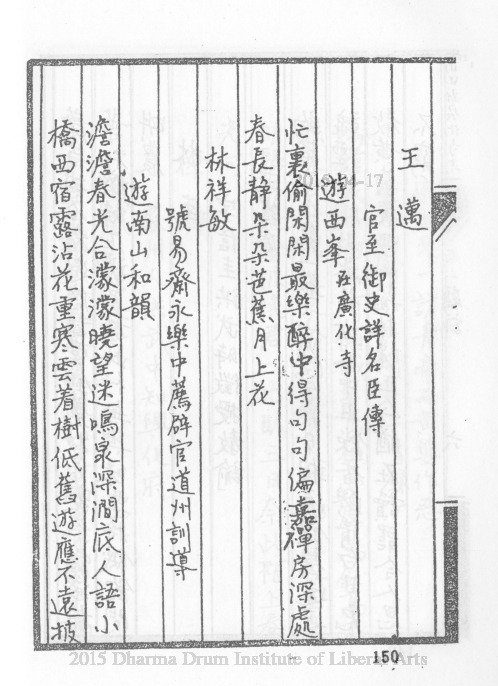 王邁
官至御史詳名臣傳
遊西峯在廣化寺
忙裏偷閑閑最樂醉中得句句偏嘉禪房深處
春長靜朶朶芭蕉月上花
林祥敏
號易齋永樂中薦辟官道州訓導
遊南山和韻
澹澹春光合濛濛曉望迷鳴泉深澗底人語小
橋西宿露沾花重寒雲着樹低舊遊應不遠披
150
2015 Dharma Drum Institute of Liberal Arts